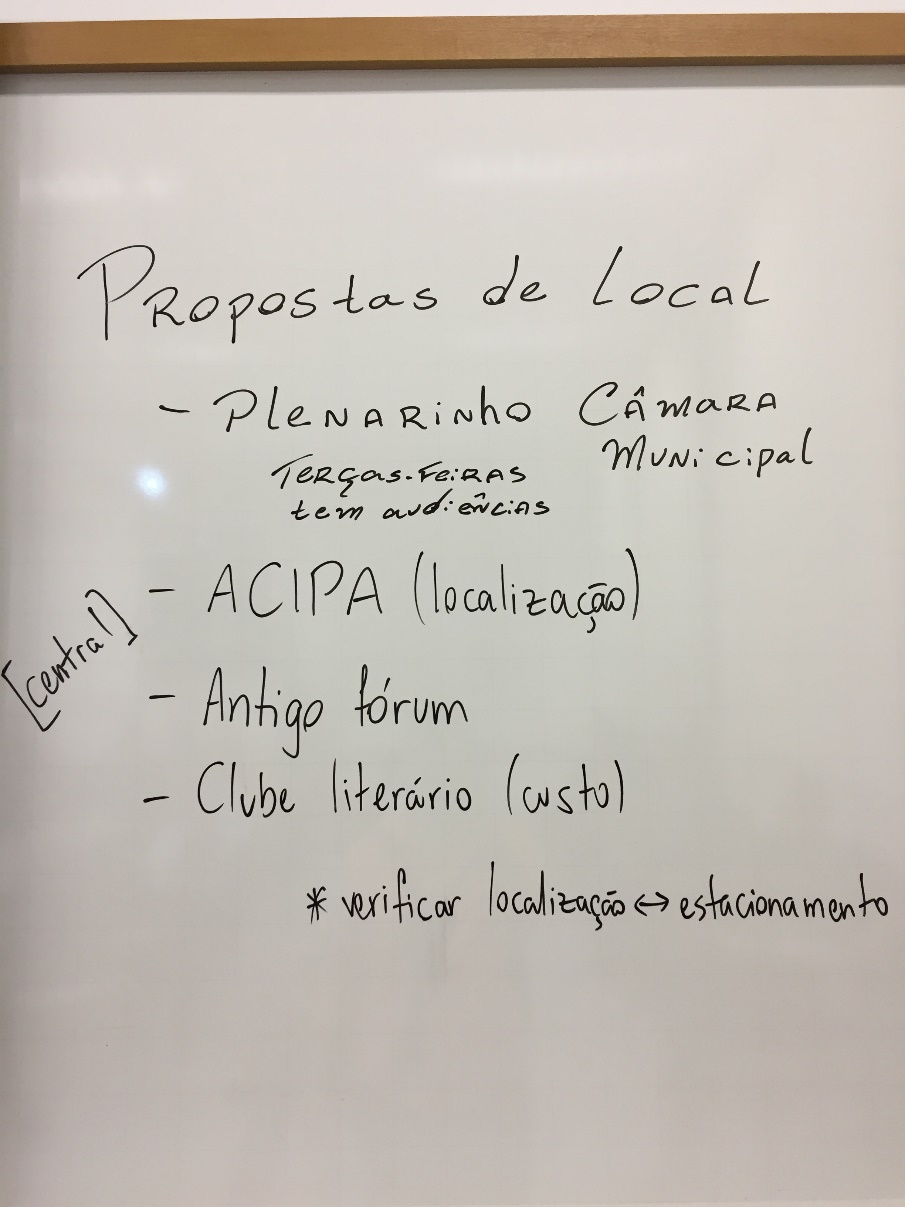 Propostas de Local
- Plenarinho Câmara
Municipal
Terças-Feiras
tem audiências
- ACIPA (localização)
[central]
- Antigo fórum
- Clube literário (custo)
* verificar localização ↔ estacionamento